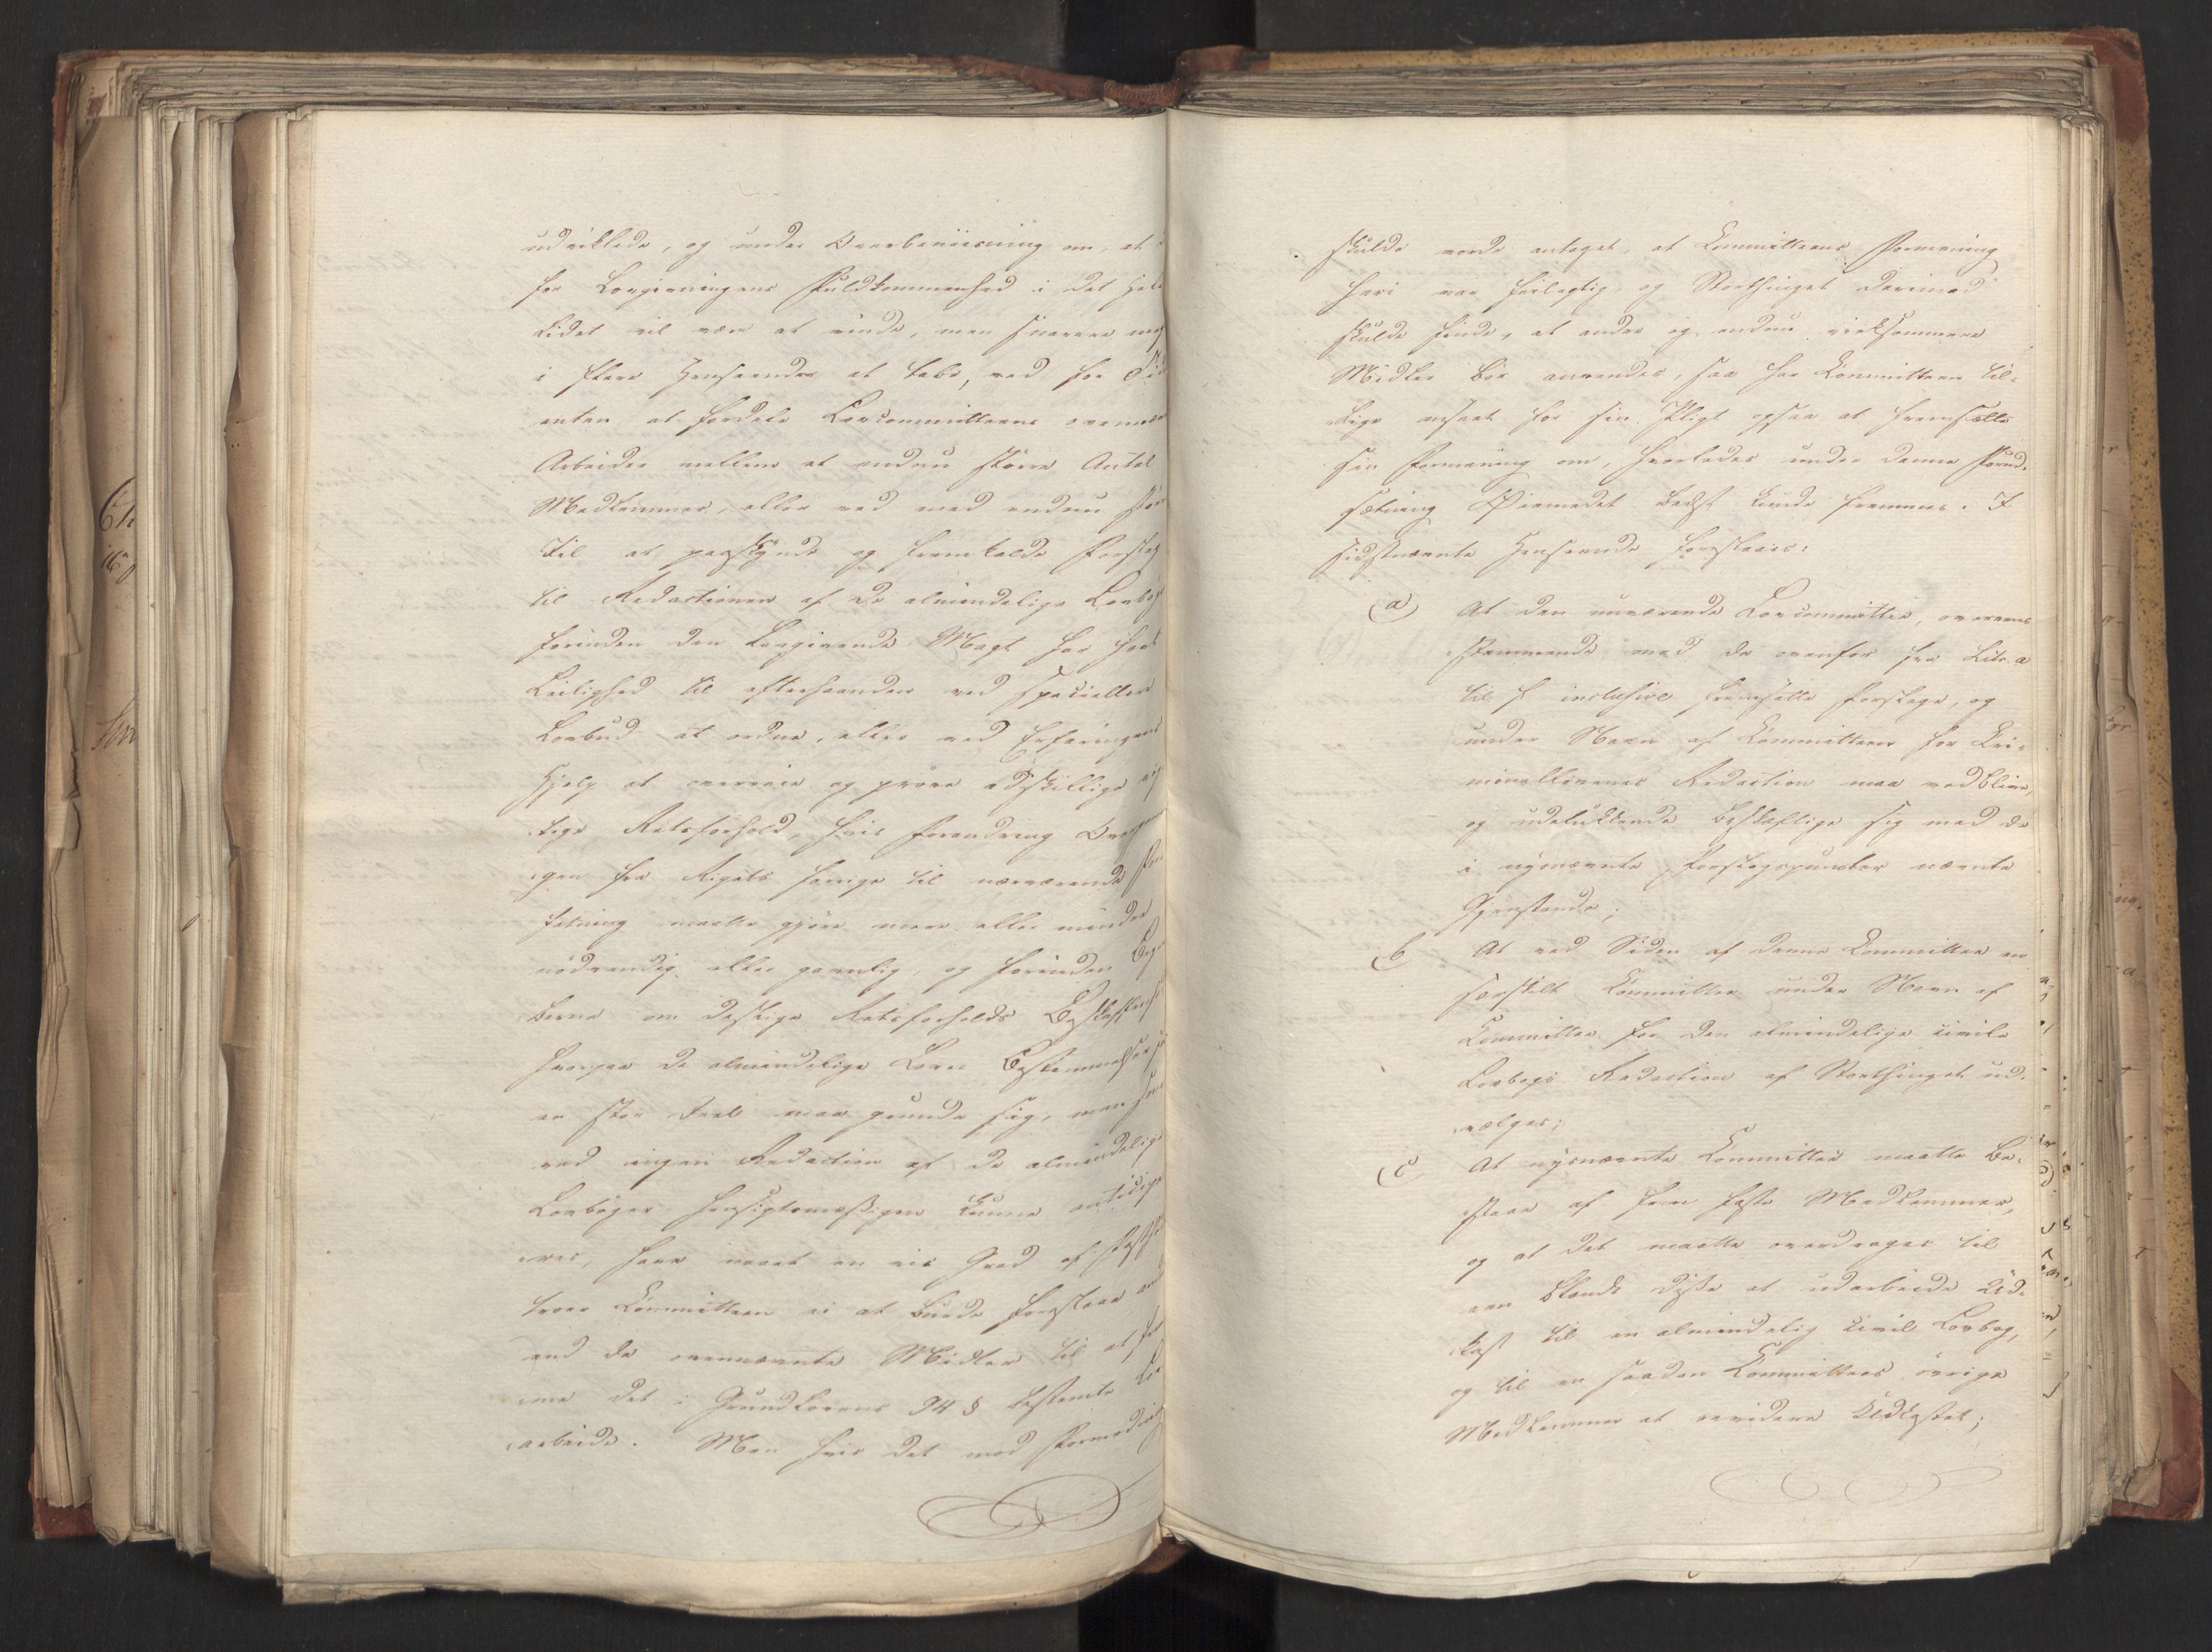 udviklede, og under Overbeviisning om, at
for Lovgivningens Fuldkommenhed i det Hele
Lidet vil være at vinde, men snarere meg
i flere Henseender at tabe, ved for Tid
enten at fordele Lovcommitteens ovennæv
Arbeider mellem et endnu større Antal
Medlemmer, eller ved med endnu stør
Iil at paaskynde og fremkalde Forslag
til Redactionen af de almindelige Lovbøg
forinden den Lovgivende Magt har havt
Leilighed til efterhaanden ved speciellere
Lovbud at ordne, eller ved Erfaringens
Hjelp at overveie og prøve adskillige vig
tige Retsforhold, hvis Forandring Overgan
gen fra Rigets forrige til nærværende For
fatning maatte gjøre mere eller mindre
nødvendig eller gavnlig, og forinden Beg
berne om deslige Retsforholds Beskaffenh
hvorpaa de almindelige Loves Bestemmelser for
en stor Deel maa grunde sig, men som
ved ingen Redaction af de almindelige
Lovbøger hensigtsmæssigen kunne anticipe
res, have naaet en vis Grad af Fasthed
troer Committeen ei at burde foreslaae andre
end de ovennævnte Midler til at frem
me det i Grundlovens 94 § bestemte Lov
arbeide. Men hvis det mod Formodning
skulde vorde antaget, at Committeens Formening
heri var feilagtig, og Storthinget derimod
skulde finde, at andre og endnu virksommere
Midler bør anvendes, saa har Committeen til-
lige anseet for sin Pligt ogsaa at fremsætte
sin Formening om, hvorledes under denne Forud-
sætning Øiemedet bedst kunde fremmes. I
sidstnævnte Henseende foreslaaes:
a) At den nuværende Lovcommittee, overeens
stemmende med de ovenfor fra Litr. a
til f inclusive fremsatte Forslage, og
under Navn af Committeen for Cri-
minallovenes Redaction maa vedblive,
og udelukkende beskæftige sig med de
i nysnævnte Forslagspuncter nævnte
Gjenstande;
b) At ved Siden af denne Committee en
særskilt Committee under Navn af
Committee for den almindelige civile
Lovbogs Redaction af Storthinget ud-
vælges;
c) At nysnævnte Committee maatte be-
staae af fem faste Medlemmer,
og at det maatte overdrages til
een blandt disse at udarbeide Ud-
kast til en almindelig civil Lovbog,
og til en saadan Committees øvrige
Medlemmer at revidere Udkastet;